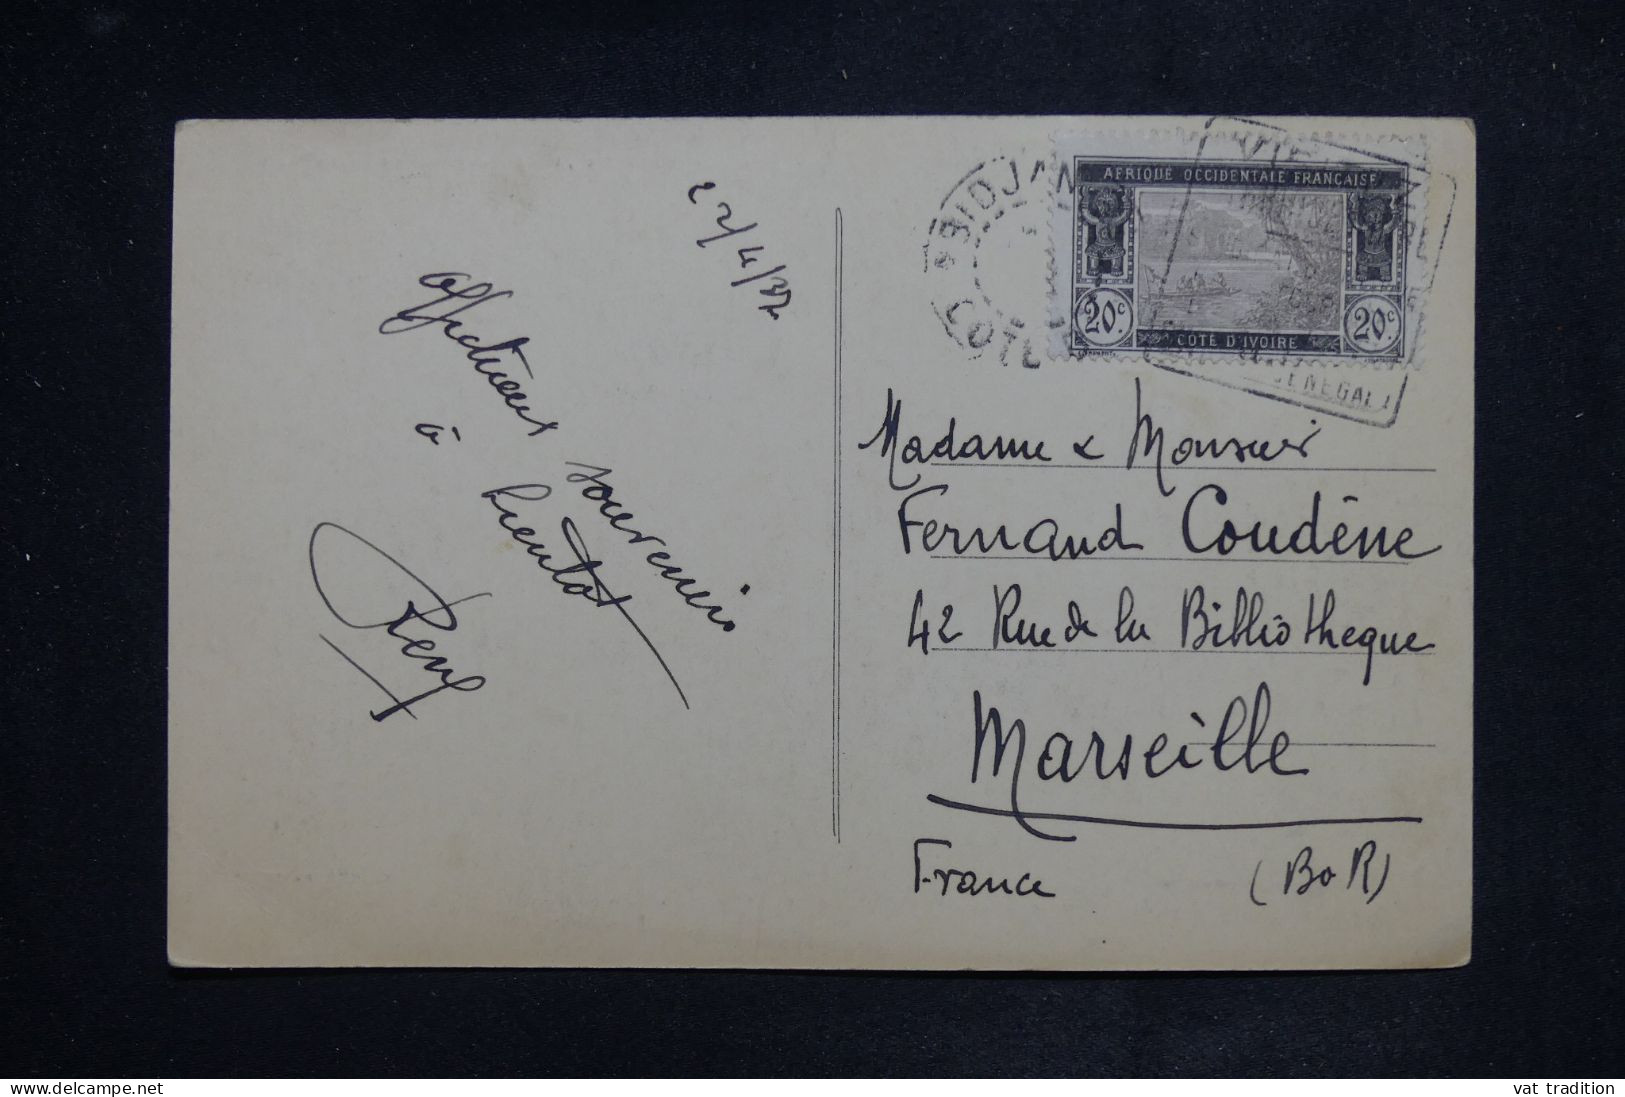 22/4/37
affectueux souvenir
à bientot
Reny
ABIDJAN
COTE
AFRIQUE OCCIDENTALE FRANÇAISE
20c. 20c.
COTE D'IVOIRE
SENEGAL)
Madame & Monsieur
Fernand Coudène
42 Rue de la Bibliothèque
Marseille
France (B du R)
www.delcampe.net
vat tradition